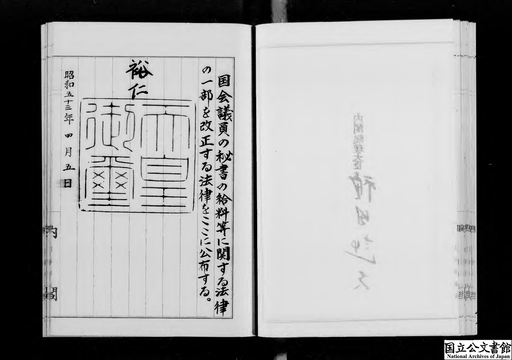 国会議員の秘書の給料等に関する法律
の一部を改正する法律をここに公布する。
裕仁
天皇
御璽
昭和五十三年四月五日
内閣
国立公文書館
National Archives of Japan